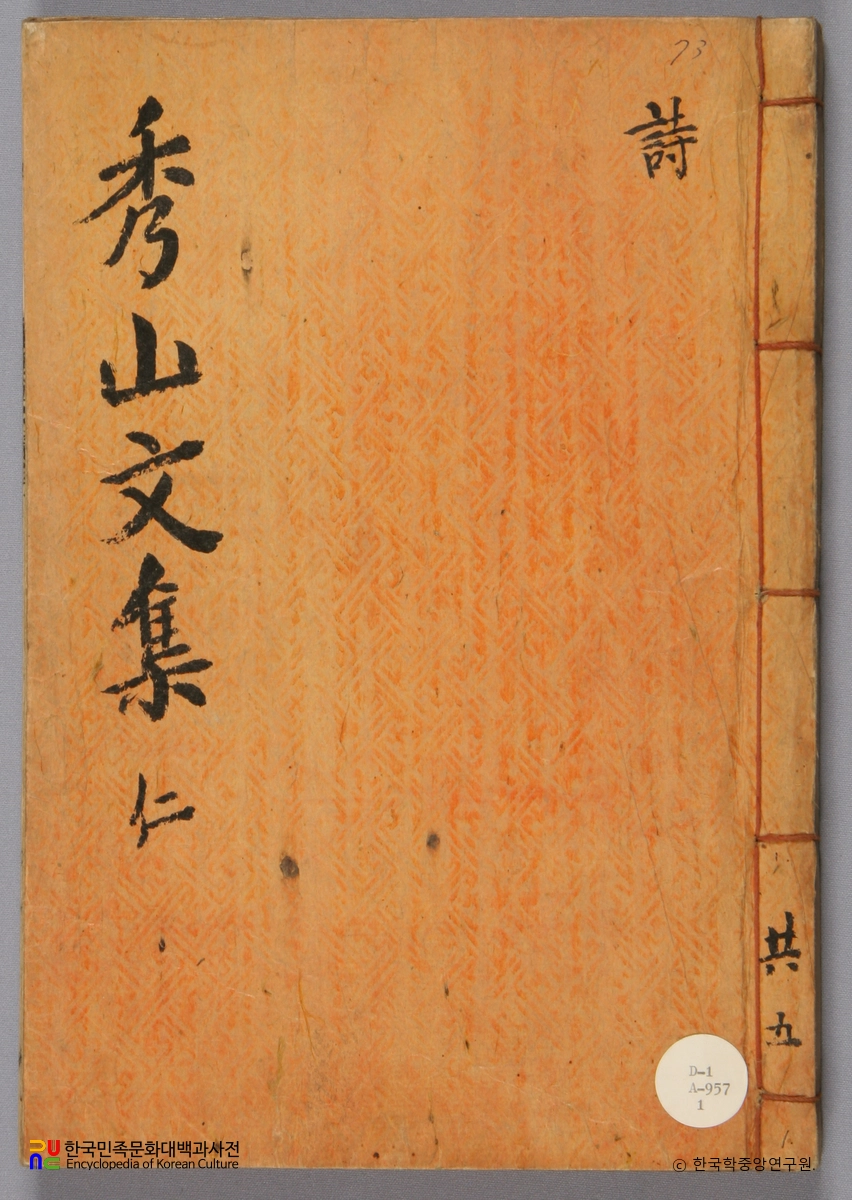 73
詩
秀山文集 仁
共五
D-1
A-957
1
한국민족문화대백과사전
Encyclopedia of Korean Culture
© 한국학중앙연구원.